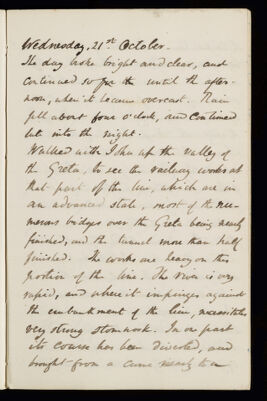 Wednesday, 21st October.
The day broke bright and clear, and
continued so for the until the after-
noon, when it became overcast. Rain
fell about four o'clock, and continued
late into the night.
Walked with John up the valley of
the Greta, to see the railway works at
that part of the line, which are in
an advanced state, most of the nu-
merous bridges over the Greta being nearly
finished, and the tunnel more than half
finished. The works are heavy on this
portion of the line. The river is very
rapid, and where it impinges against
the embankment of the line, necessitates
very strong stonework. In one part
its course has been diverted, and
brought from a curve nearly to a